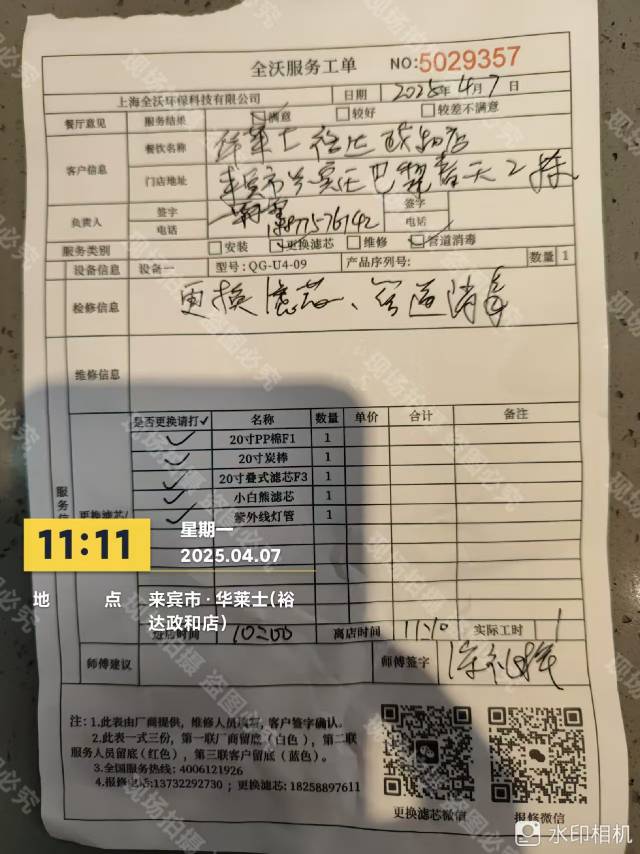 全沃服务工单 NO:5029357
上海全沃环保科技有限公司 日期 2025年4月7日
餐厅意见 服务结果 满意 较好 较差不满意
客户信息 餐饮名称 华莱士裕达政和店
门店地址 来宾市兴宾区
负责人 签字 签字
电话 电话
服务类别 安装 更换滤芯 维修 管道消毒
设备信息 设备一 型号:QG-U4-09 产品序列号: 数量 1
检修信息 更换滤芯、管道消毒
维修信息
是否更换请打✓ 名称 数量 单价 合计 备注
✓ 20寸PP棉F1 1
✓ 20寸炭棒 1
✓ 20寸叠式滤芯F3 1
✓ 小白熊滤芯 1
✓ 紫外线灯管 1
服务信
更换滤芯/
11:11 星期一
2025.04.07
地 点 来宾市·华莱士(裕达政和店)
进店时间 离店时间 11:10 实际工时 1
师傅建议 师傅签字
注:1.此表由厂商提供,维修人员填写,客户签字确认。
2.此表一式三份,第一联厂商留底(白色),第二联
服务人员留底(红色),第三联客户留底(蓝色)。
3.全国服务热线:4006121926
4.报修电话:13732292730;更换滤芯:18258897611
更换滤芯微信 报修微信
水印相机
现场拍摄 盗图必究